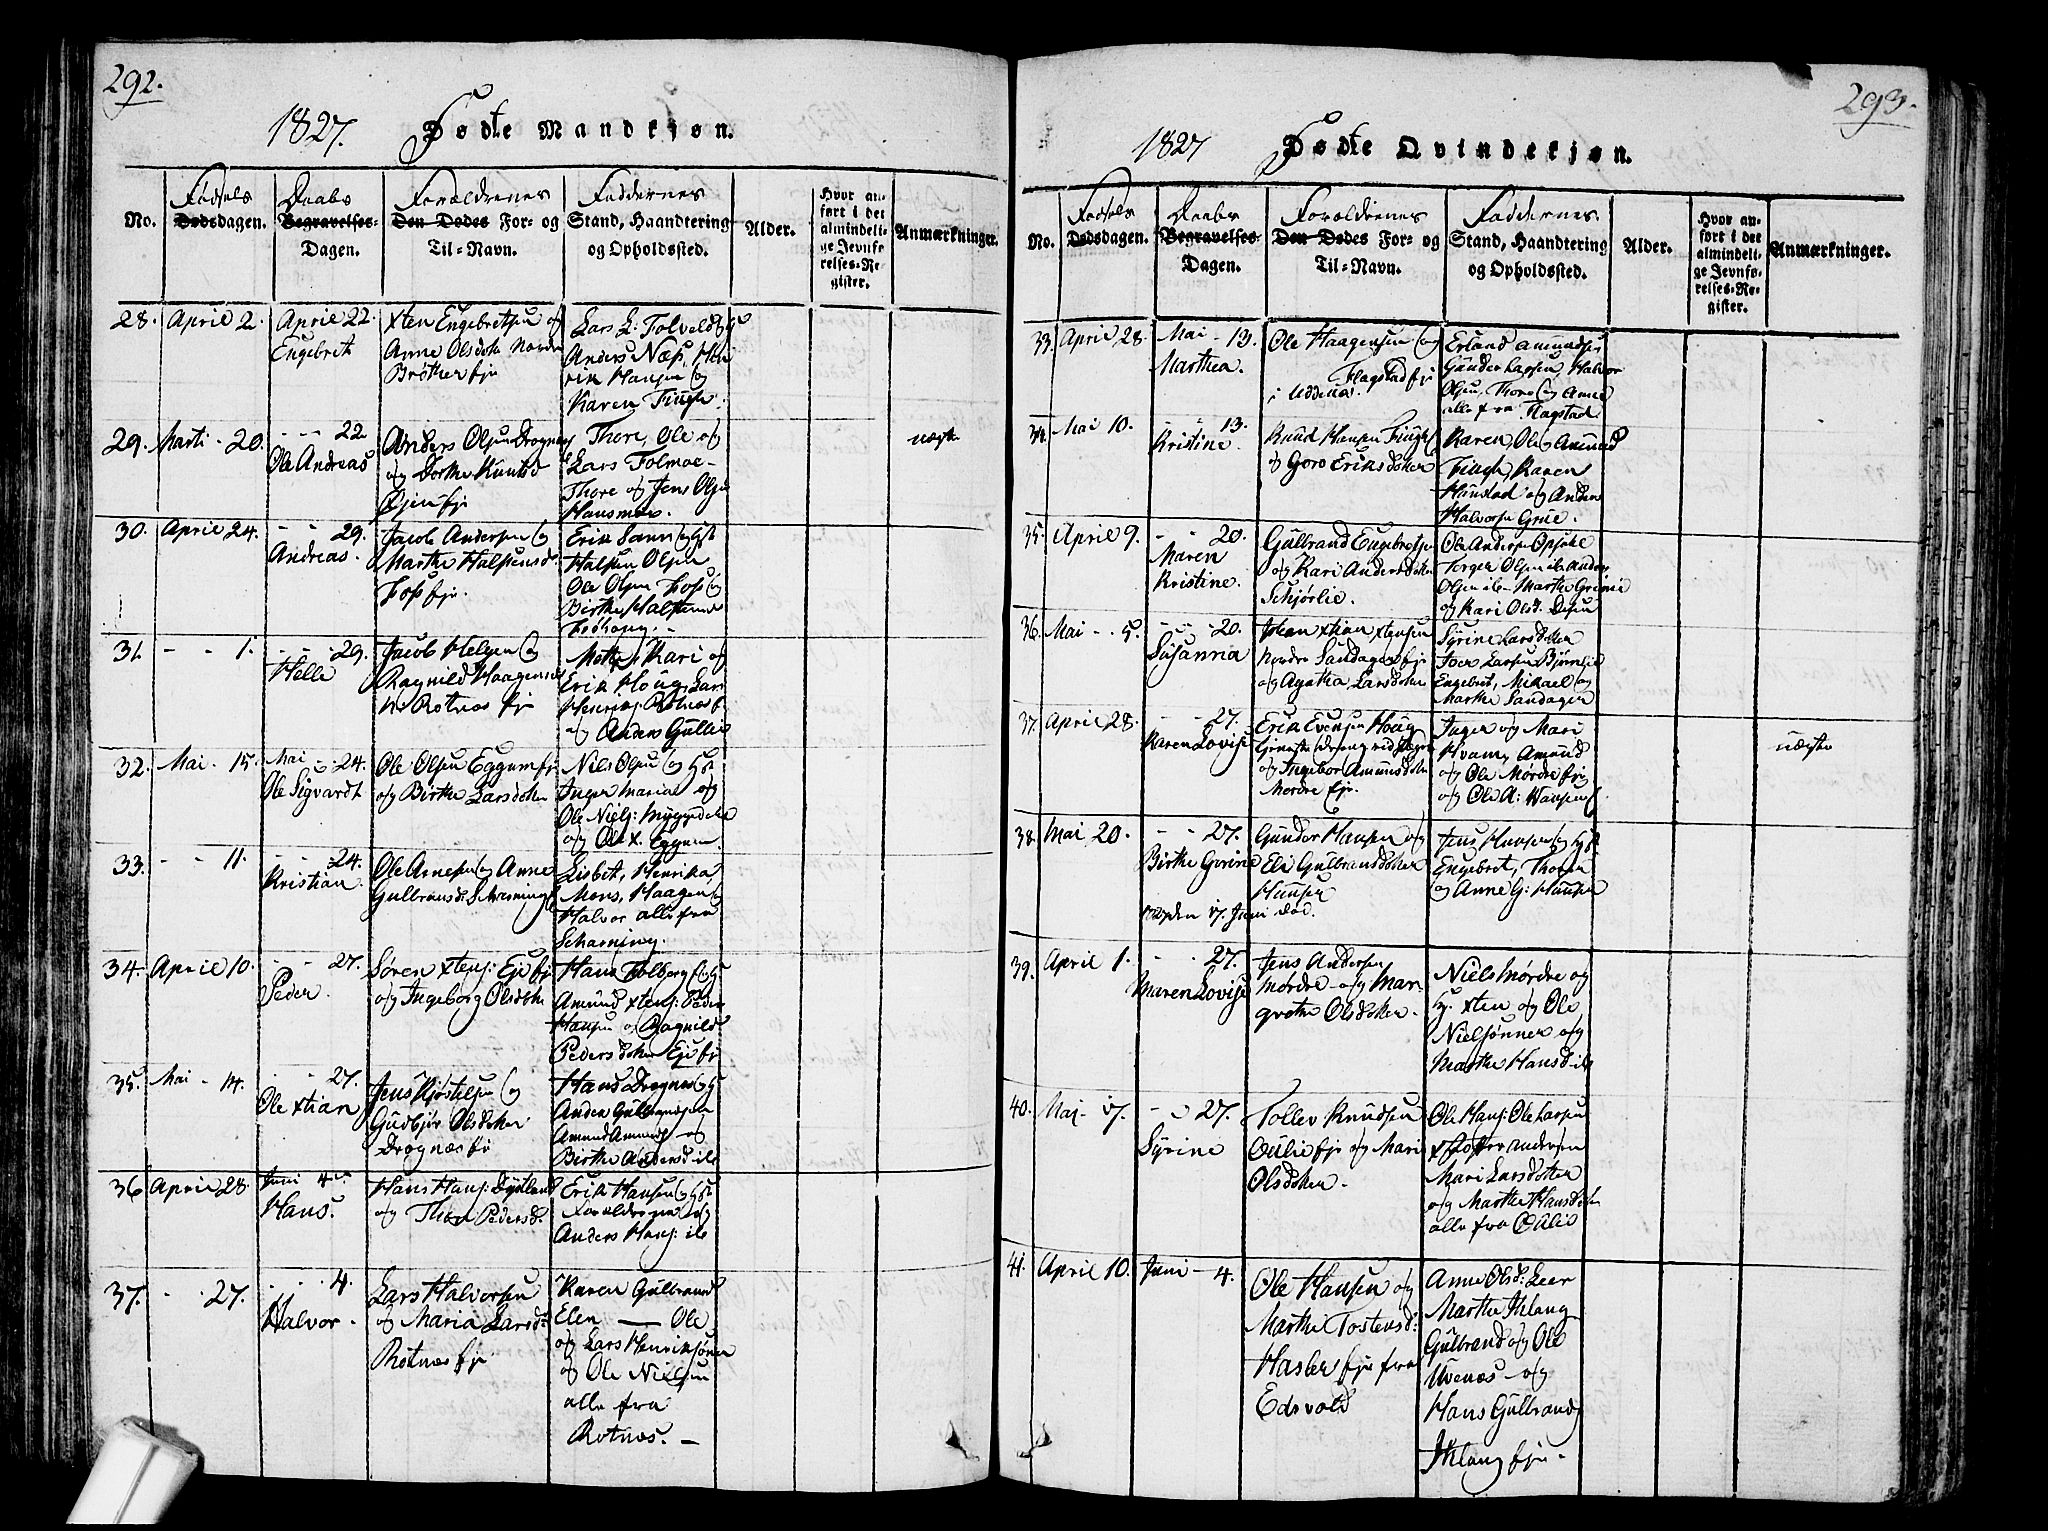 292.
1827. Fødte Mandkjøn.
No.
Fødsels
Dødsdagen.
Daabs
Begravelses-
Dagen.
Forældrenes
Den Dødes For- og
Til-Navn.
Faddernes
Stand, Haandtering
og Opholdssted.
Alder.
Hvor an-
ført i det
almindeli-
ge Jevnfø-
relses-Re-
gister.
Anmærkninger.
28. April 2.
April 22.
Engebret
Xten Engebretsen og
Anne Olsdotter Nordre
Brøther
Lars L: Tolvild
Anders Næss, Hen
rik Hansen og
Karen Fingh.
29. Marti - 20.
- - 22
Ole Andreas
Anders Olsen Drognes
og Dorthe Knutsd
Øjern
Thore, Ole og
Lars Tolmoe -
Thore og Jens Olsen
Hansmoe.
uægte
30. April 24.
- - 29.
Andreas.
Jacob Andersen og
Marthe Halstensd.
Foss
Erik Sann og Hst
Halsten Olsen
Ole Olsen Foss og
Birthe Halstens
31. - - 1.
- - 29.
Helle
Jacob Helgesen og
Ragnild Haagensd
Rotnæs
Kari og
Erik Houg, Lars
Rotnæs
og Anders Gullie
32. Mai - 15.
Mai - 24.
Ole Sigvardt
Ole Olsen Eggum
og Birthe Larsdotter
Niels Olsen og Hst
Inger Maria og
Ole Niels:
og Ole X. Eggum.
33. - - 11.
- - 24.
Kristian.
Ole Arnesen og Anne
Gulbransd Scharning
Lisbet, Henrika,
Mons, Haagen og
Halvor alle fra
Scharning.
34. April 10.
- - 27.
Peder.
Søren Xtens: Eje
og Ingeborg Olsdotter
Hans Tolberg
Amund Xtens: Peder
Hansen og Ragnild
Pedersdotter Eje
35. Mai - 14.
- - 27.
Ole Xtian
Jens Kjøstelsen og
Gudbjør Olsdotter
Drognæs
Hans Drognæs
Anders Gulbrandsen
Amund Amunds og
Birthe Andersd ib
36 April 28.
Juni 4.
Hans.
Hans Hans: Dystland
og Thea Pedersd.
Erik Hansen og Hst
Forældrene og
Anders Hans: ib
37. - - 27.
- - 4
Halvor -
Lars Halvorsen
og Maria Larsd:
Rotnæs
Karen Gulbrand
Elen — Ole
og Lars Henriksønner
og Ole Nielsen
alle fra
Rotnæs. -
293.
1827 Fødte Qvindekjøn.
No.
Fødsels
Dødsdagen.
Daabs
Begravelses-
Dagen.
Forældrenes
Den Dødes For- og
Til-Navn.
Faddernes
Stand, Haandtering
og Opholdssted.
Alder.
Hvor an-
ført i det
almindeli-
ge Jevnfø-
relses-Re-
gister.
Anmærkninger.
33. April 28.
Mai - 13.
Marthea.
Ole Haagensen og
Flagstad
i Uddenæs.
Erland Amundsen
Gunder Larsen, Halvor
Olsen, Thore og Anne
alle fra Flagstad
34. Mai 10.
- - 13.
Kristine.
Knud Hansen Fingh
og Goro Eriksdotter
Karen, Ole og Amund
Fingh, Karen
Hunstad og Anders
Halvorsen Grue.
35. April 9.
- - 20.
Maren
Kristine.
Gulbrand Engebretsen
og Kari Andersdotter
Schjørlie.
Ole Anders: Opsahl
Torger Olsen ib Anders
Olsen ib - Marthe Grimie
og Kari Olsd.
36. Mai - 5.
- - 20.
Susanna
Johan Xtian Xtensen
Nordre Sandager
og Agatha Larsdotter
Syrine Larsdotter
Iver Larsen Bjørnlie
Engebret, Mikael og
Marthe Sandager
37. April 28.
- - 27.
Karen Lovise
Erik Evensen Houg
og Ingebor Amundsdotter
Mordre
Inger og Mari
Hvam, Amund
og Ole Mordre
og Ole A: Hansen
uægte
38. Mai 20.
- - 27.
Birthe Gurine
Gunder Hansen og
Eli Gulbrandsdotter
Haugen
den 17. Juni død.
Jens Hansen og Hst
Engebret, Thoren
og Anne G: Haugen
39. April 1.
- - 27.
Maren Lovise
Jens Andersen
Mordre - og Mar
grethe Olsdotter -
Niels Mordre og
H. Xten og Ole
Nielsønner og
Marthe Hansd ib
40. Mai - 17.
- - 27.
Syrine
Tollev Knudsen
Oulie og Mari
Olsdotter -
Ole Hans: Ole Larsen
Xtoffer Andersen
Mari Larsdotter
og Marthe Hansdotter
alle fra Oulie
41. April 10.
Juni - 4.
Ole Hansen og
Marthe Tostensd:
Hasler fra
Edsvold
Anne Olsd: Leer
Marthe Ihlang
Gulbrand og Ole
Uvenæs - og
Hans Gulbrands
Ihlang